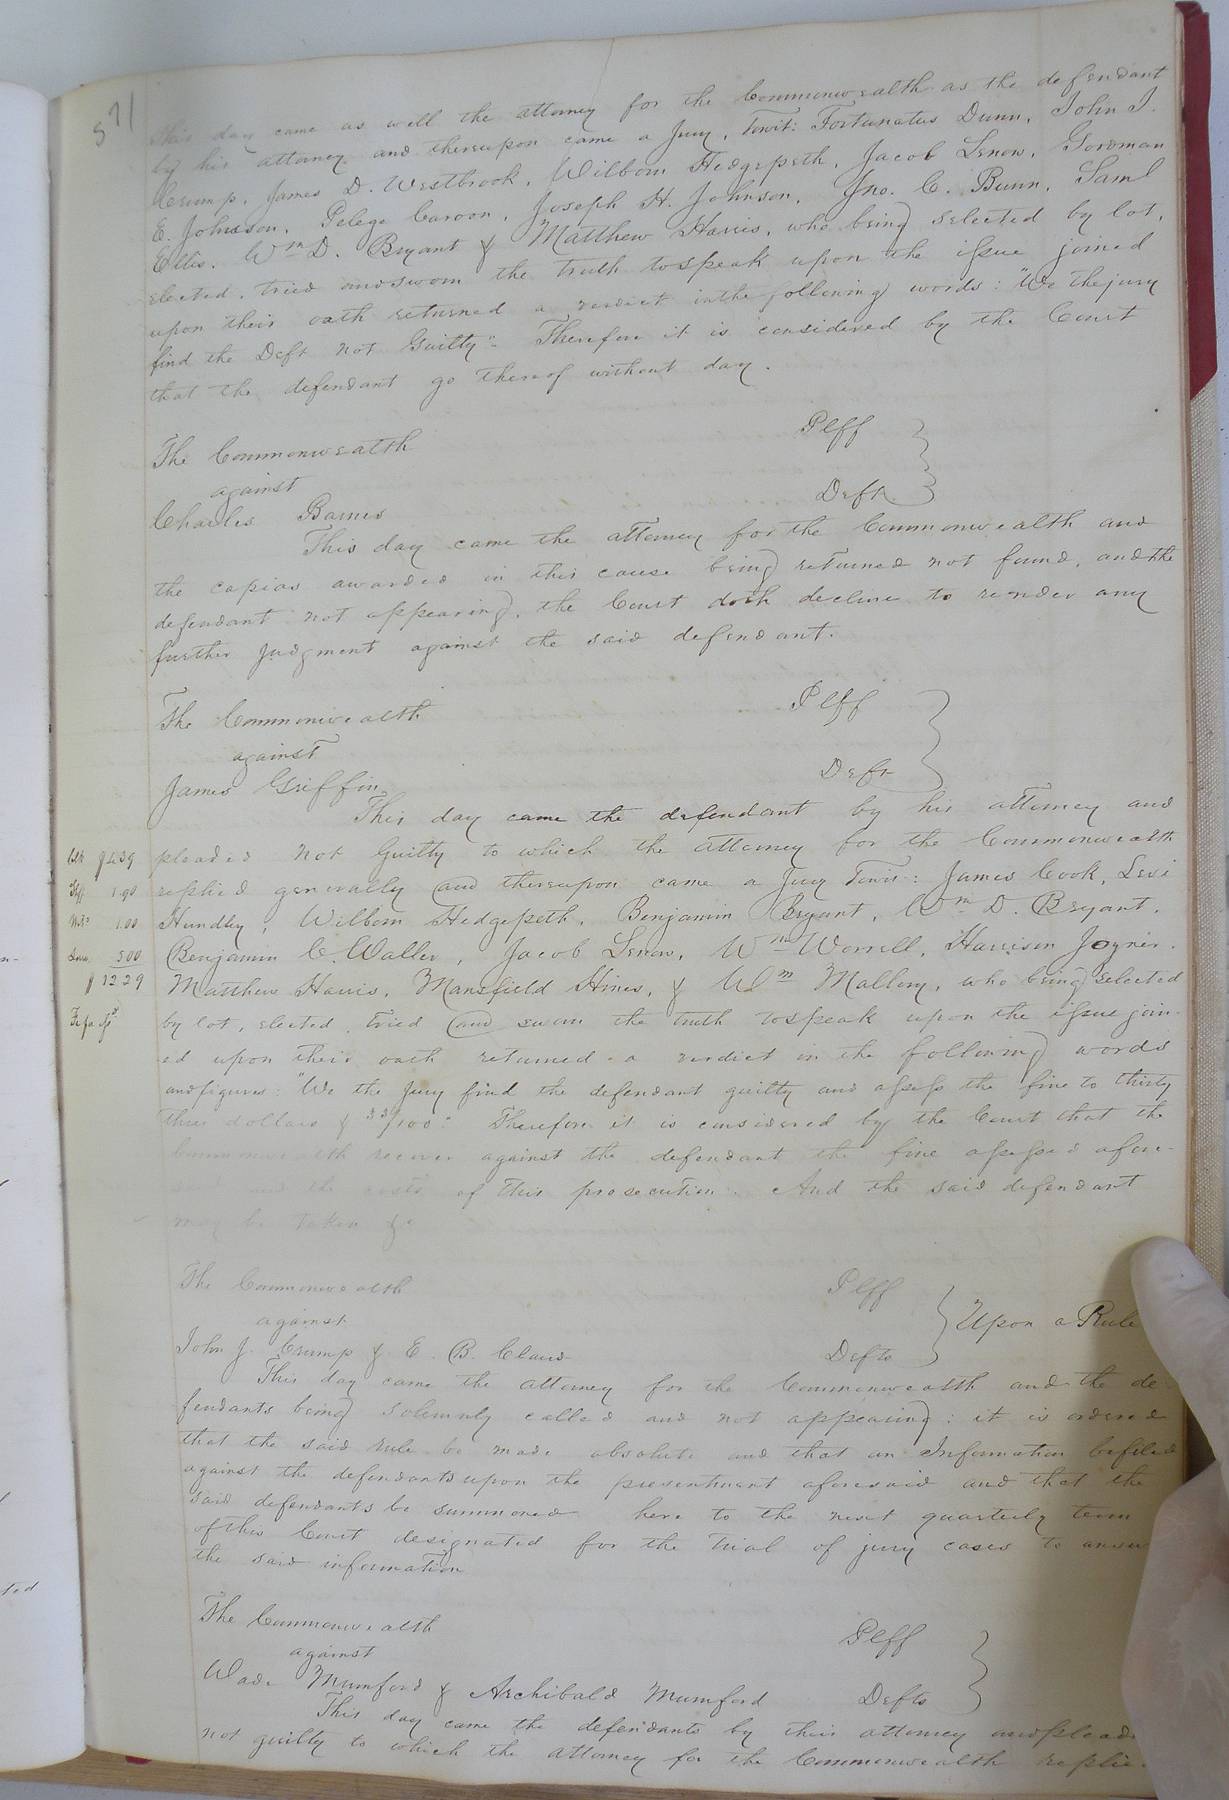 571
This day came as well the attorney for the Commonwealth as the defendant
by his attorney and thereupon came a Jury, Towit: Fortunatus Dunn, John J.
Crump, James D. Westbrook, Wilborn Hedgepeth, Jacob Lenow, Goodman
E. Johnson, Pelege Caroon, Joseph H. Johnson, Jno. C. Bunn, Saml
Ellis, Wm D. Bryant & Matthew Harris, who being selected by lot,
elected, tried and sworn the truth to speak upon the issue joined
upon their oath returned a verdict in the following words: "We the jury
find the Deft not Guilty" Therefore it is considered by the Court
that the defendant go thereof without day.
The Commonwealth Plff
against
Charles Barnes Deft
This day came the attorney for the Commonwealth and
the capias awarded in this cause being returned not found, and the
defendant not appearing, the Court doth decline to render any
further judgment against the said defendant.
The Commonwealth Plff
against
James Griffin Deft
This day came the defendant by his attorney and
Clk $4.39 pleaded not Guilty to which the attorney for the Commonwealth
Shff 1.90 replied generally and thereupon came a Jury Towit: James Cook, Levi
1.00 Hundley, Wilborn Hedgepeth, Benjamin Bryant, Wm D. Bryant,
5.00 Benjamin C. Waller, Jacob Lenow, Wm Worrell, Harrison Joyner,
$12.29 Matthew Harris, Mansfield Hines, & Wm Mallory, who being selected
Fi fa by lot, elected, tried and sworn the truth to speak upon the issue join-
ed upon their oath returned a verdict in the following words
and figures: "We the Jury find the defendant guilty and assess the fine to thirty
three dollars & 33/100." Therefore it is considered by the Court that the
Commonwealth recover against the defendant the fine assessed afore-
said and the costs of this prosecution. And the said defendant
may be taken &c
The Commonwealth Plff
against Upon a Rule
John J. Crump & E. B. Claud Defts
This day came the attorney for the Commonwealth and the de-
fendants being solemnly called and not appearing: it is ordered
that the said rule be made absolute and that an Information be filed
against the defendants upon the presentment aforesaid and that the
said defendants be summoned here to the next quarterly term
of this Court designated for the trial of jury cases to answer
the said information
The Commonwealth Plff
against
Wade Mumford & Archibald Mumford Defts
This day came the defendants by their attorney and plead
not guilty to which the attorney for the Commonwealth replie